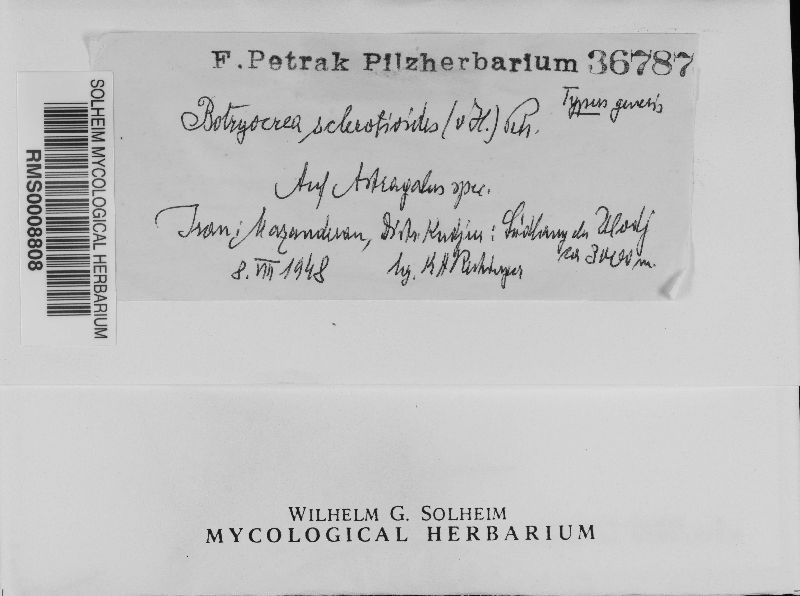 F. Petrak Pilzherbarium 36787
Botryocrea sclerotioides (v H.) Petr.
Typus generis
Auf Astragalus spec.
Iran: Mazanderan, Distr. Kudjur: Südhang des Ulodj
ca 3000 m.
8. VIII 1948 lg. K H Rechinger
SOLHEIM MYCOLOGICAL HERBARIUM
RMS0008808
WILHELM G. SOLHEIM
MYCOLOGICAL HERBARIUM